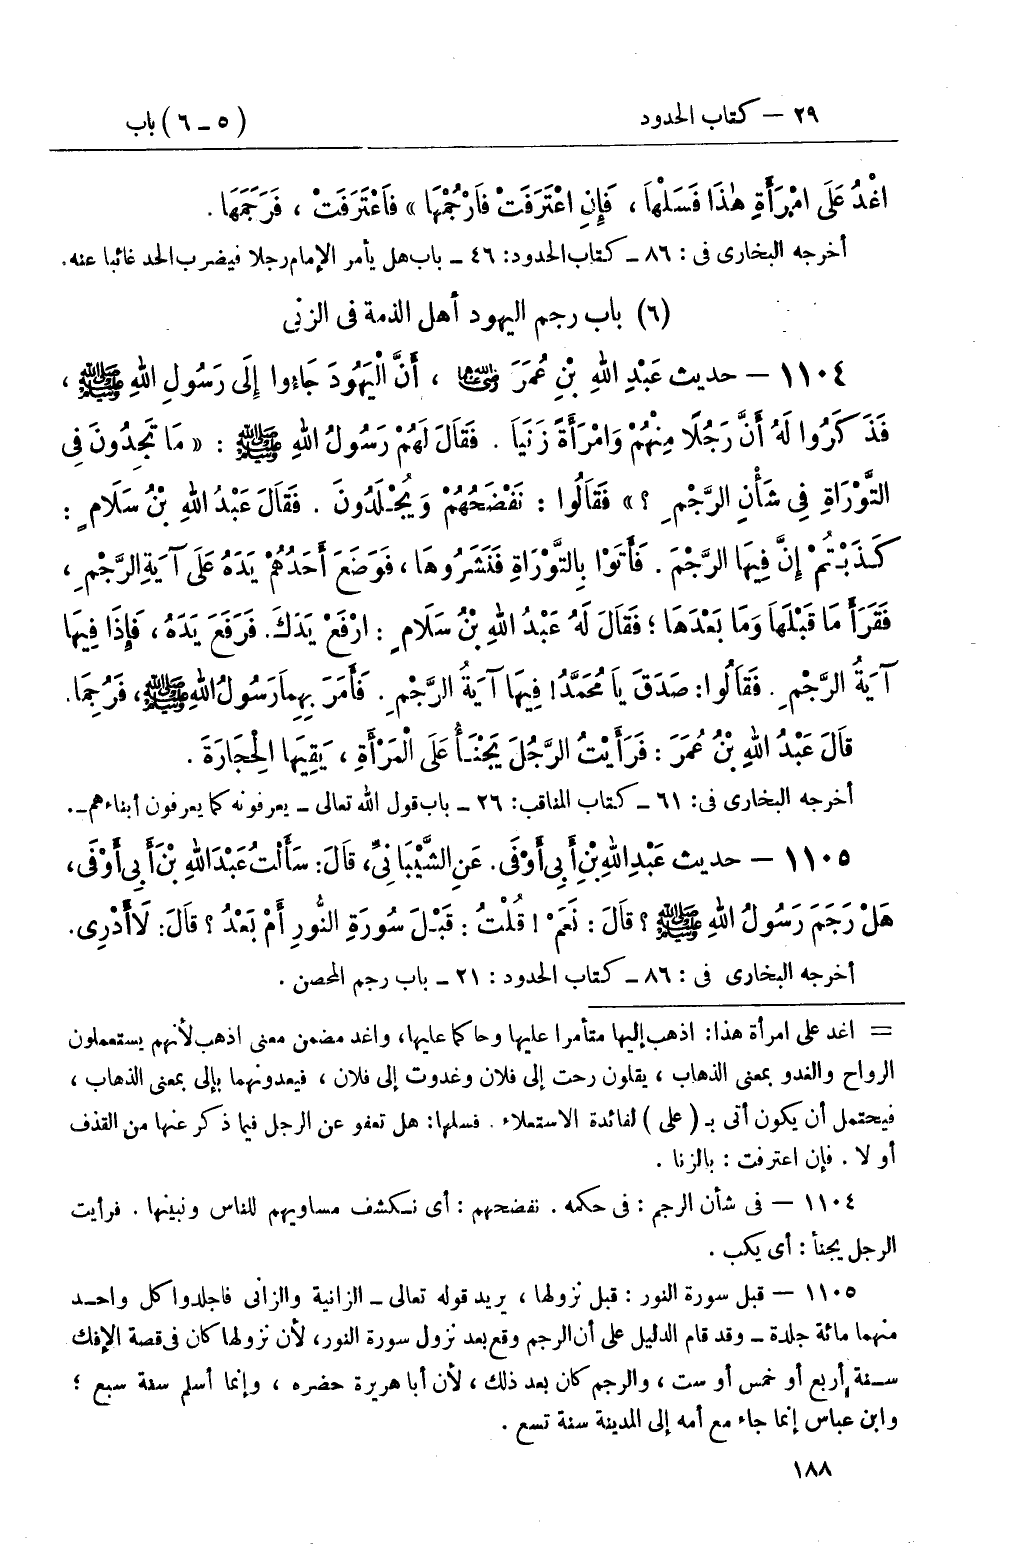 ٢٩ – كتاب الحدود
(٥ – ٦) باب
اغْدُ عَلَى امْرَأَةِ هٰذَا فَسَلْهَا ، فَإِنِ اعْتَرَفَتْ فَارْجُمْهَا » فَاعْتَرَفَتْ ، فَرَجَمَهَا .
أخرجه البخارى فى : ٨٦ – كتاب الحدود: ٤٦ – باب هل يأمر الإمام رجلا فيضرب الحد غائبا عنه.
(٦) باب رجم اليهود أهل الذمة فى الزنى
١١٠٤ – حديث عَبْدِ اللهِ بْنِ عُمَرَ رضي الله عنهما ، أَنَّ الْيَهُودَ جَاءُوا إِلَى رَسُولِ اللهِ ﷺ ،
فَذَكَرُوا لَهُ أَنَّ رَجُلًا مِنْهُمْ وَامْرَأَةً زَنَيَا . فَقَالَ لَهُمْ رَسُولُ اللهِ ﷺ : « مَا تَجِدُونَ فِى
التَّوْرَاةِ فِى شَأْنِ الرَّجْمِ ؟ » فَقَالُوا : نَفْضَحُهُمْ وَيُجْلَدُونَ . فَقَالَ عَبْدُ اللهِ بْنُ سَلَامٍ :
كَذَبْتُمْ إِنَّ فِيهَا الرَّجْمَ . فَأَتَوْا بِالتَّوْرَاةِ فَنَشَرُوهَا ، فَوَضَعَ أَحَدُهُمْ يَدَهُ عَلَى آيَةِ الرَّجْمِ ،
فَقَرَأَ مَا قَبْلَهَا وَمَا بَعْدَهَا ؛ فَقَالَ لَهُ عَبْدُ اللهِ بْنُ سَلَامٍ : ارْفَعْ يَدَكَ. فَرَفَعَ يَدَهُ ، فَإِذَا فِيهَا
آيَةُ الرَّجْمِ . فَقَالُوا: صَدَقَ يَا مُحَمَّدُ! فِيهَا آيَةُ الرَّجْمِ . فَأَمَرَ بِهِمَا رَسُولُ اللهِ ﷺ ، فَرُجِمَا.
قَالَ عَبْدُ اللهِ بْنُ عُمَرَ : فَرَأَيْتُ الرَّجُلَ يَجْنَأُ عَلَى الْمَرْأَةِ ، يَقِيهَا الْحِجَارَةَ .
أخرجه البخارى فى: ٦١ – كتاب المناقب: ٢٦ – باب قول الله تعالى – يعرفونه كما يعرفون أبناءهم –.
١١٠٥ – حديث عَبْدِ اللهِ بْنِ أَبِى أَوْفَى. عَنِ الشَّيْبَانِىِّ، قَالَ: سَأَلْتُ عَبْدَ اللهِ بْنَ أَبِى أَوْفَى،
هَلْ رَجَمَ رَسُولُ اللهِ ﷺ ؟ قَالَ : نَعَمْ ! قُلْتُ : قَبْلَ سُورَةِ النُّورِ أَمْ بَعْدُ ؟ قَالَ: لَا أَدْرِى.
أخرجه البخارى فى : ٨٦ – كتاب الحدود : ٢١ – باب رجم المحصن .
= اغد على امرأة هذا: اذهب إليها متأمرا عليها وحاكما عليها، واغد مضمن معنى اذهب لأنهم يستعملون
الرواح والغدو بمعنى الذهاب ، يقلون رحت إلى فلان وغدوت إلى فلان ، فيعدونهما بإلى بمعنى الذهاب ،
فيحتمل أن يكون أتى بـ ( على ) لفائدة الاستعلاء . فسلها: هل تعفو عن الرجل فيما ذكر عنها من القذف
أو لا . فإن اعترفت : بالزنا .
١١٠٤ – فى شأن الرجم : فى حكمه . نفضحهم : أى نكشف مساويهم للناس ونبينها . فرأيت
الرجل يجنأ : أى يكب .
١١٠٥ – قبل سورة النور : قبل نزولها ، يريد قوله تعالى – الزانية والزانى فاجلدوا كل واحد
منهما مائة جلدة – وقد قام الدليل على أن الرجم وقع بعد نزول سورة النور، لأن نزولها كان فى قصة الإفك
سنة أربع أو خمس أو ست ، والرجم كان بعد ذلك ، لأن أبا هريرة حضره ، وإنما أسلم سنة سبع ؛
وابن عباس إنما جاء مع أمه إلى المدينة سنة تسع .
١٨٨